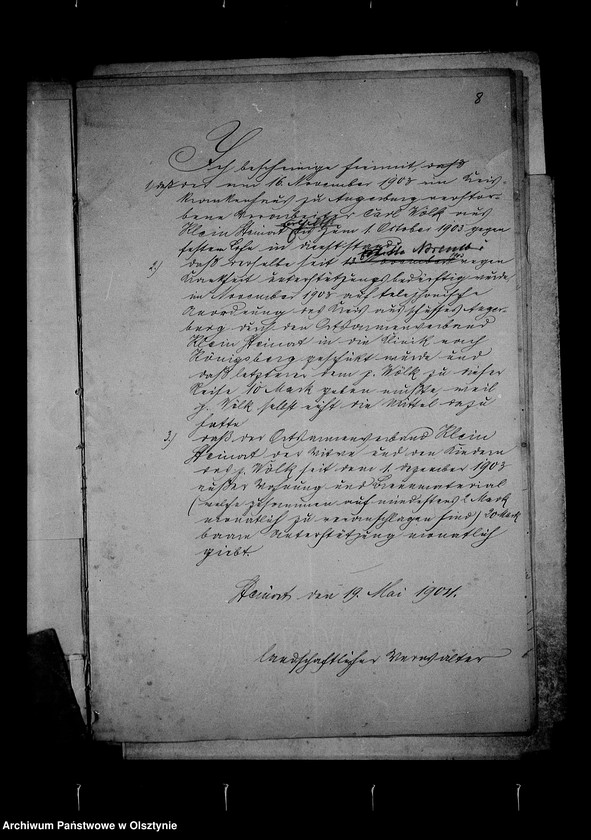 8
Ich bescheinige hiermit, daß
1) daß der am 16. November 1903 im Kreis-
krankenhaus zu Angerburg verstor-
bene Carl Völk aus
Klein Heinat zum 1. October 1903 gegen
festen Lohn in
2) daß derselbe seit wegen
Krankheit unterstützungsbedürftig wurde,
im November 1903 auf telephonische
Anordnung des Kreisausschusses Anger-
burg durch den Ortsarmenverband
Klein Heinat in die Klinik nach
Königsberg geschickt wurde und
daß letzterer dem p. Völk zu dieser
Reise 10 Mark geben mußte, weil
p. Völk selbst nicht die Mittel dazu
hatte
3) daß der Ortsarmenverband Klein
Heinat der Witwe und den Kindern
des p. Völk seit dem 1. Dezember 1903
außer Wohnung und Brennmaterial
(welche zusammen auf mindestens 2 Mark
monatlich zu veranschlagen sind) 20 Mark
baare Unterstützung monatlich
giebt.
Heinat den 19. Mai 1904.
landschaftlicher Verwalter
Archiwum Państwowe w Olsztynie